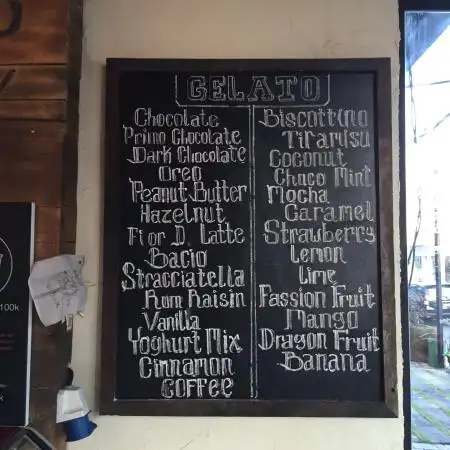 GELATO
Chocolate
Primo Chocolate
Dark Chocolate
Oreo
Peanut Butter
Hazelnut
Fior D. Latte
Bacio
Stracciatella
Rum Raisin
Vanilla
Yoghurt Mix
Cinnamon
COFFEE
Biscottino
Tiramisu
Coconut
Choco Mint
Mocha
Caramel
Strawberry
Lemon
Lime
Passion Fruit
Mango
Dragon Fruit
Banana
100k